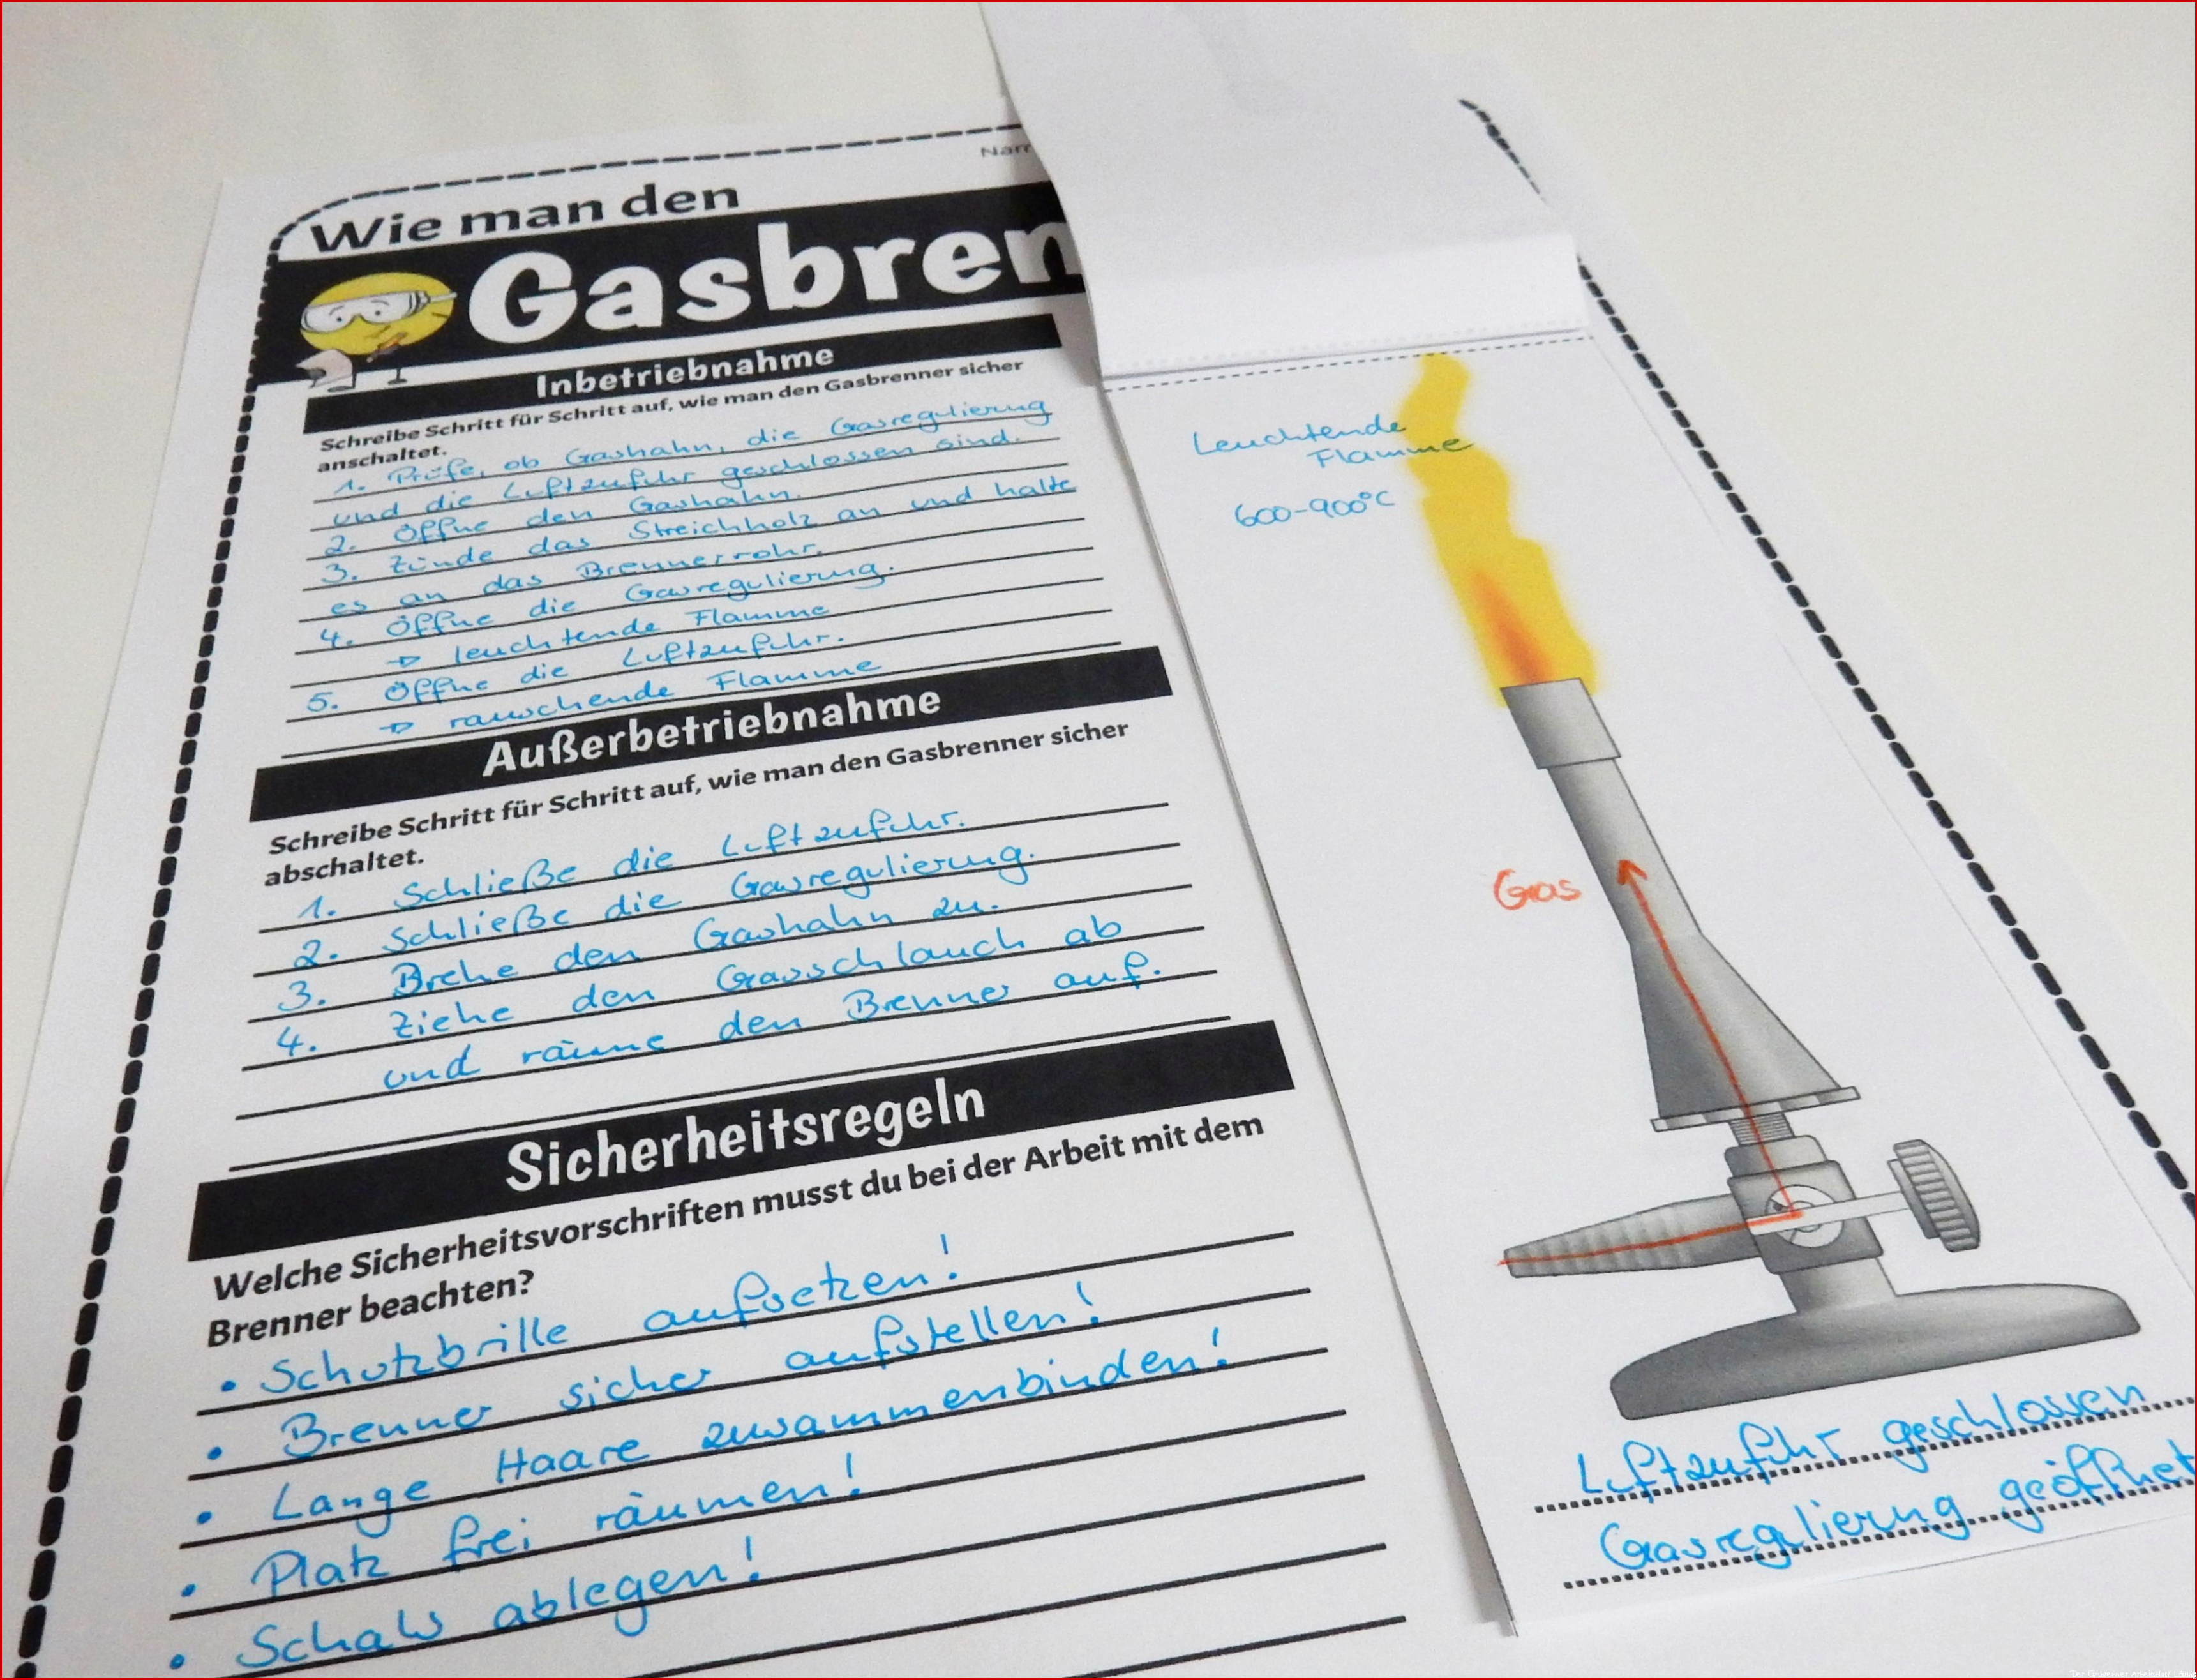 Nam
Wie man den
Gasbren
Inbetriebnahme
Schreibe Schritt für Schritt auf, wie man den Gasbrenner sicher
anschaltet.
1. Prüfe, ob Gashahn, die Gasregulierung
und die Luftzufuhr geschlossen sind.
2. Öffne den Gashahn.
3. Zünde das Streichholz an und halte
es an das Brennerrohr.
4. Öffne die Gasregulierung.
→ leuchtende Flamme
5. Öffne die Luftzufuhr.
→ rauschende Flamme
Außerbetriebnahme
Schreibe Schritt für Schritt auf, wie man den Gasbrenner sicher
abschaltet.
1. Schließe die Luftzufuhr.
2. Schließe die Gasregulierung.
3. Drehe den Gashahn zu.
4. Ziehe den Gasschlauch ab
und räume den Brenner auf.
Sicherheitsregeln
Welche Sicherheitsvorschriften musst du bei der Arbeit mit dem
Brenner beachten?
• Schutzbrille aufsetzen!
• Brenner sicher aufstellen!
• Lange Haare zusammenbinden!
• Platz frei räumen!
• Schals ablegen!
Leuchtende
Flamme
600-900°C
Gas
Luftzufuhr geschlossen
Gasregulierung geöffnet